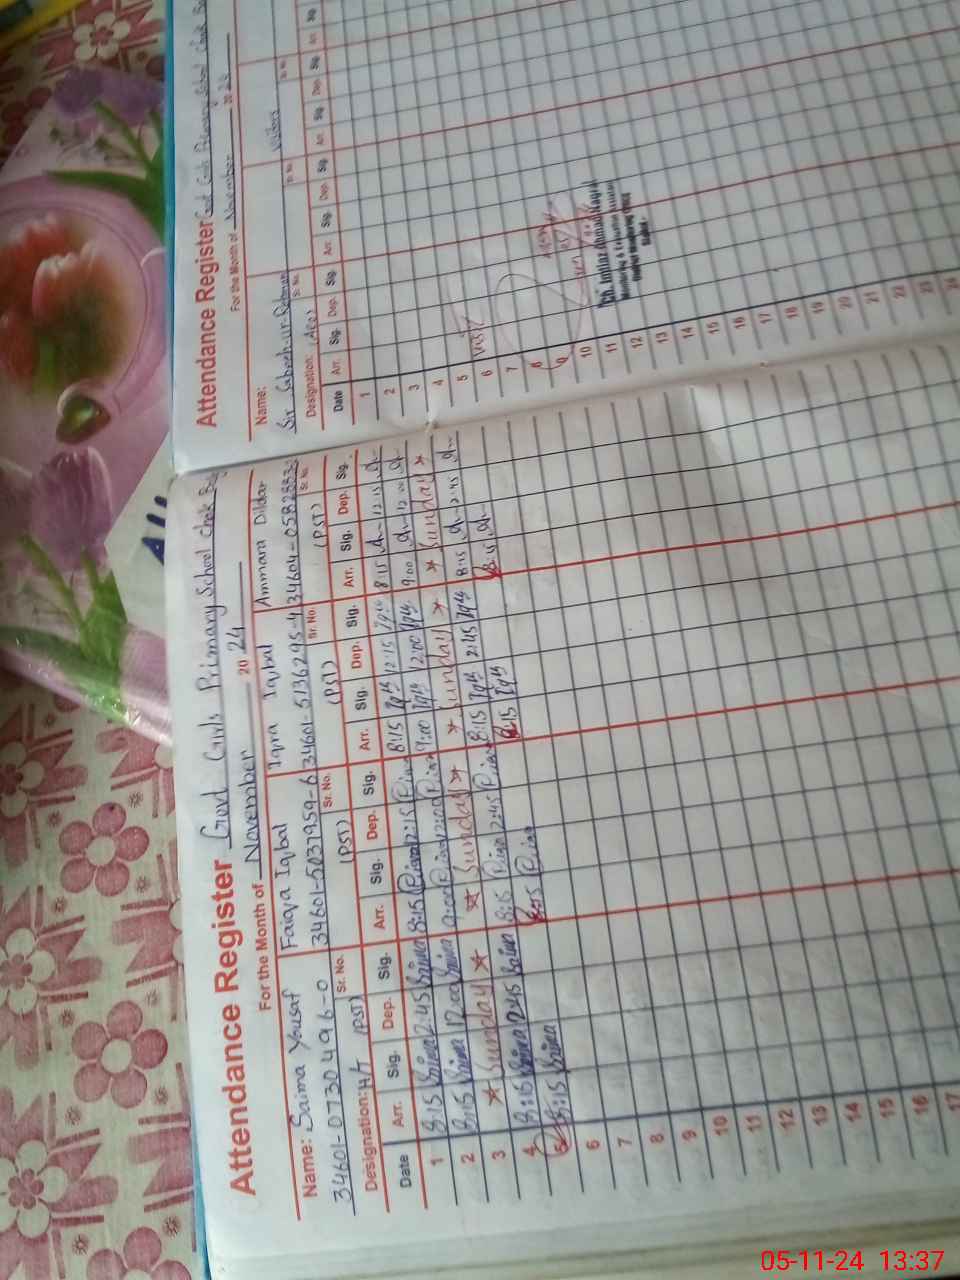 Attendance Register Govt Girls Primary School Chak
For the Month of November 2024
Name: Saima Yousaf Faiqa Iqbal Iqra Iqbal Ammara Dildar
34601-0730496-0 34601-5037959-6 34601-5136295-4 34604-0582883
Sr. No. Sr. No. Sr. No. Sr. No.
Designation: H/T (PST) (PST) (PST) (PST)
Date Arr. Sig. Dep. Sig. Arr. Sig. Dep. Sig. Arr. Sig. Dep. Sig. Arr. Sig. Dep. Sig.
1 8:15 Saima 2:45 Saima 8:15 12:15 8:15 12:15 8:15 12:15
2 8:15 Saima 12:00 Saima 9:00 12:00 9:00 12:00 9:00 12:00
3 * Sunday * * Sunday * * Sunday * * Sunday *
4 8:15 Saima 2:45 Saima 8:15 2:45 8:15 2:45 8:15 2:45
5 8:15 Saima 8:15 8:15 8:15
6
7
8
9
10
11
12
13
14
15
16
17
Attendance Register Govt Girls Primary School Chak
For the Month of November 2024
Name:
Sir Sabeeh-ur-Rehman Visitors
Sr. No. Sr. No. Sr. No.
Designation: (AEO)
Date Arr. Sig. Dep. Sig. Arr. Sig. Dep. Sig. Arr. Sig. Dep. Sig. Arr. Sig.
1
2
3
4
5 Visit
6
7
8
9
10
11
12
13
14
15
16
17
18
19
20
21
22
23
24
Ch. Imtiaz Ahmad
Monitoring & Evaluation Assistant
05-11-24 13:37